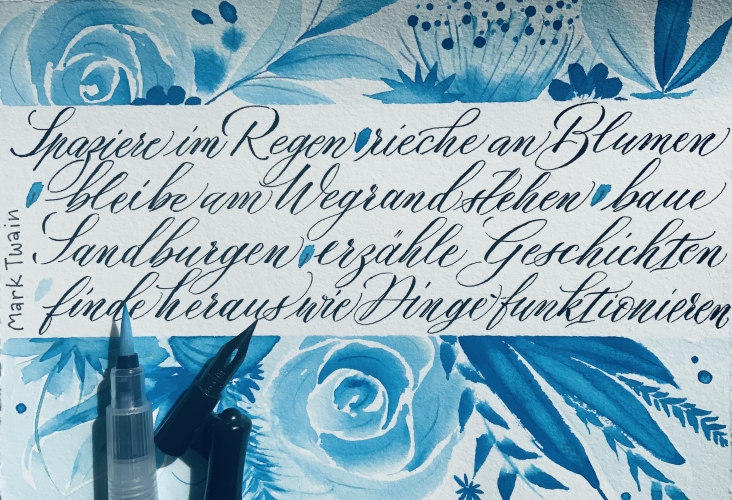 Spaziere im Regen rieche an Blumen
bleibe am Wegrand stehen baue
Sandburgen erzähle Geschichten
finde heraus wie Dinge funktionieren
Mark Twain